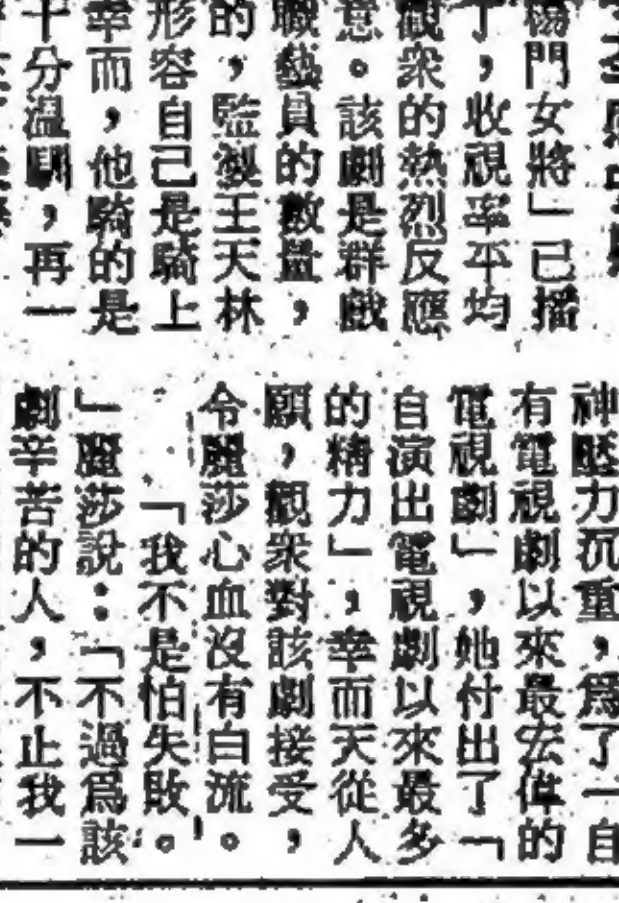 楊門女將」已播
了，收視率平均
觀衆的熱烈反應
意。該劇是群戲
職藝員的數量，
的，監製王天林
形容自己是騎上
幸而，他騎的是
十分溫馴，再一
神壓力沉重，爲了一自
有電視劇以來最宏偉的
電視劇」，她付出了「
自演出電視劇以來最多
的精力」，幸而天從人
願，觀衆對該劇接受，
令麗莎心血沒有白流。
「我不是怕失敗。
」麗莎說：「不過爲該
劇辛苦的人，不止我一